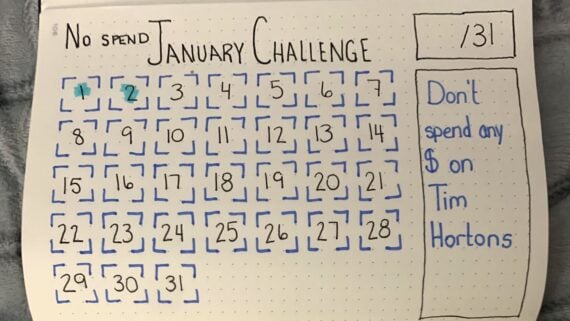 No SPEND JANUARY CHALLENGE
/31
1 2 3 4 5 6 7
8 9 10 11 12 13 14
15 16 17 18 19 20 21
22 23 24 25 26 27 28
29 30 31
Don't
spend any
$ on
Tim
Hortons